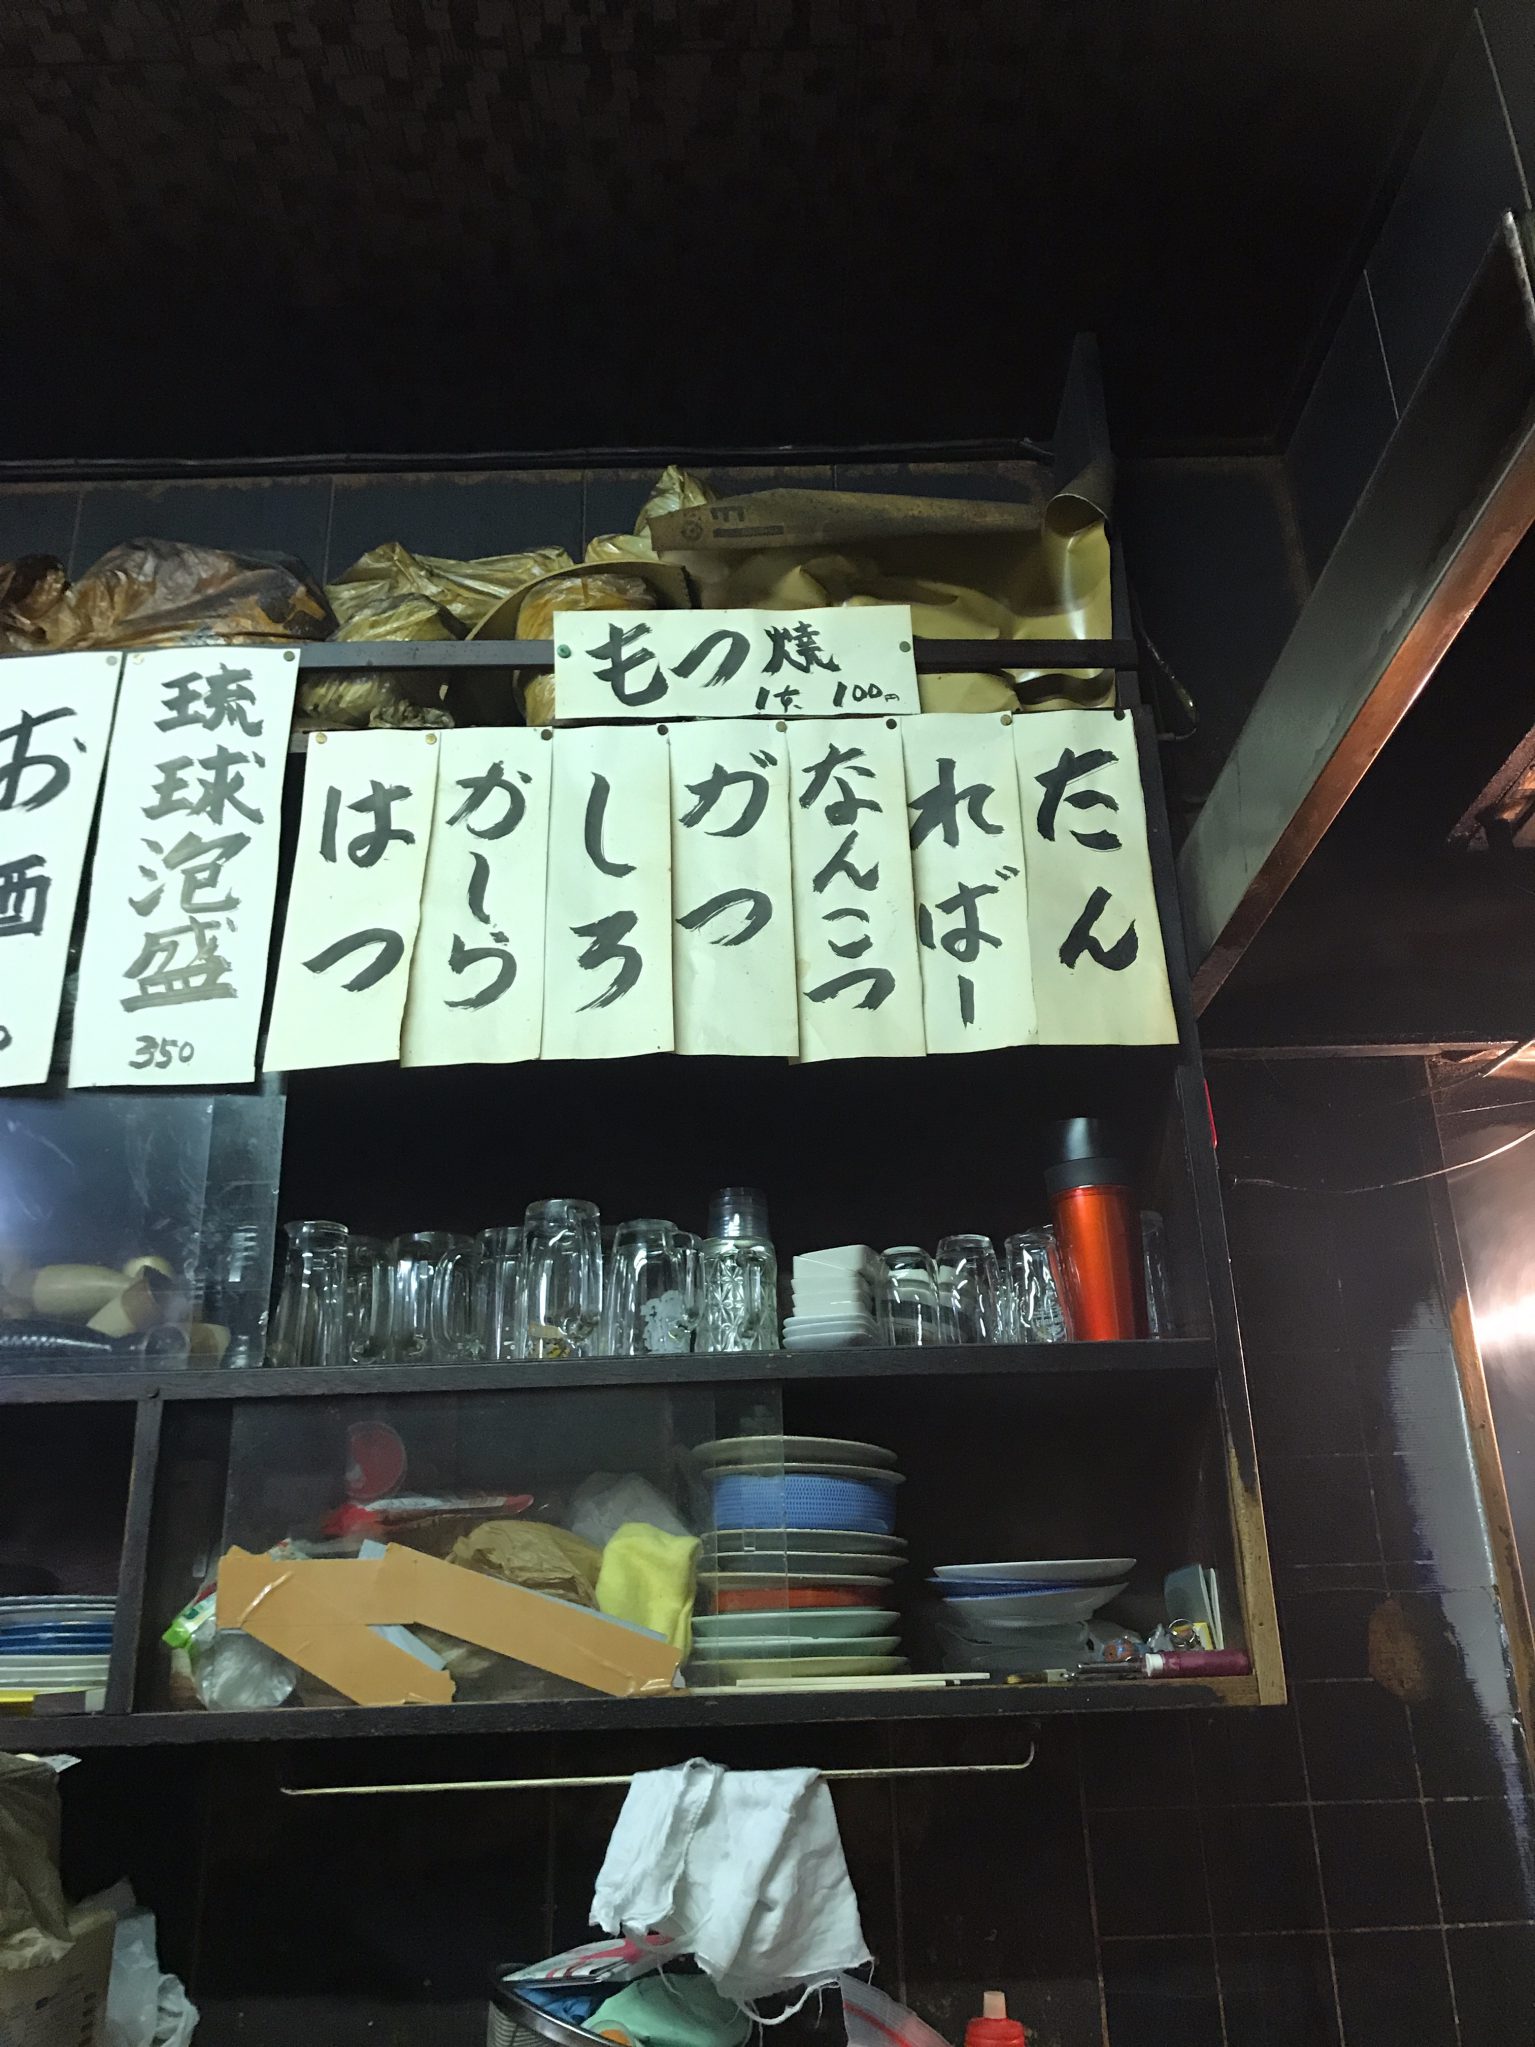 もつ焼
1本 100円
たん
ればー
なんこつ
ガつ
しろ
かしら
はつ
琉球泡盛
350
お酒